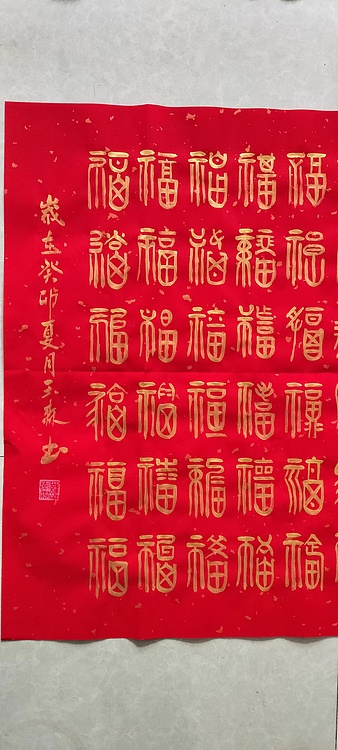 福福福福福福
福福福福福福
福福福福福福
福福福福福福
福福福福福福
嵗在癸卯夏月书